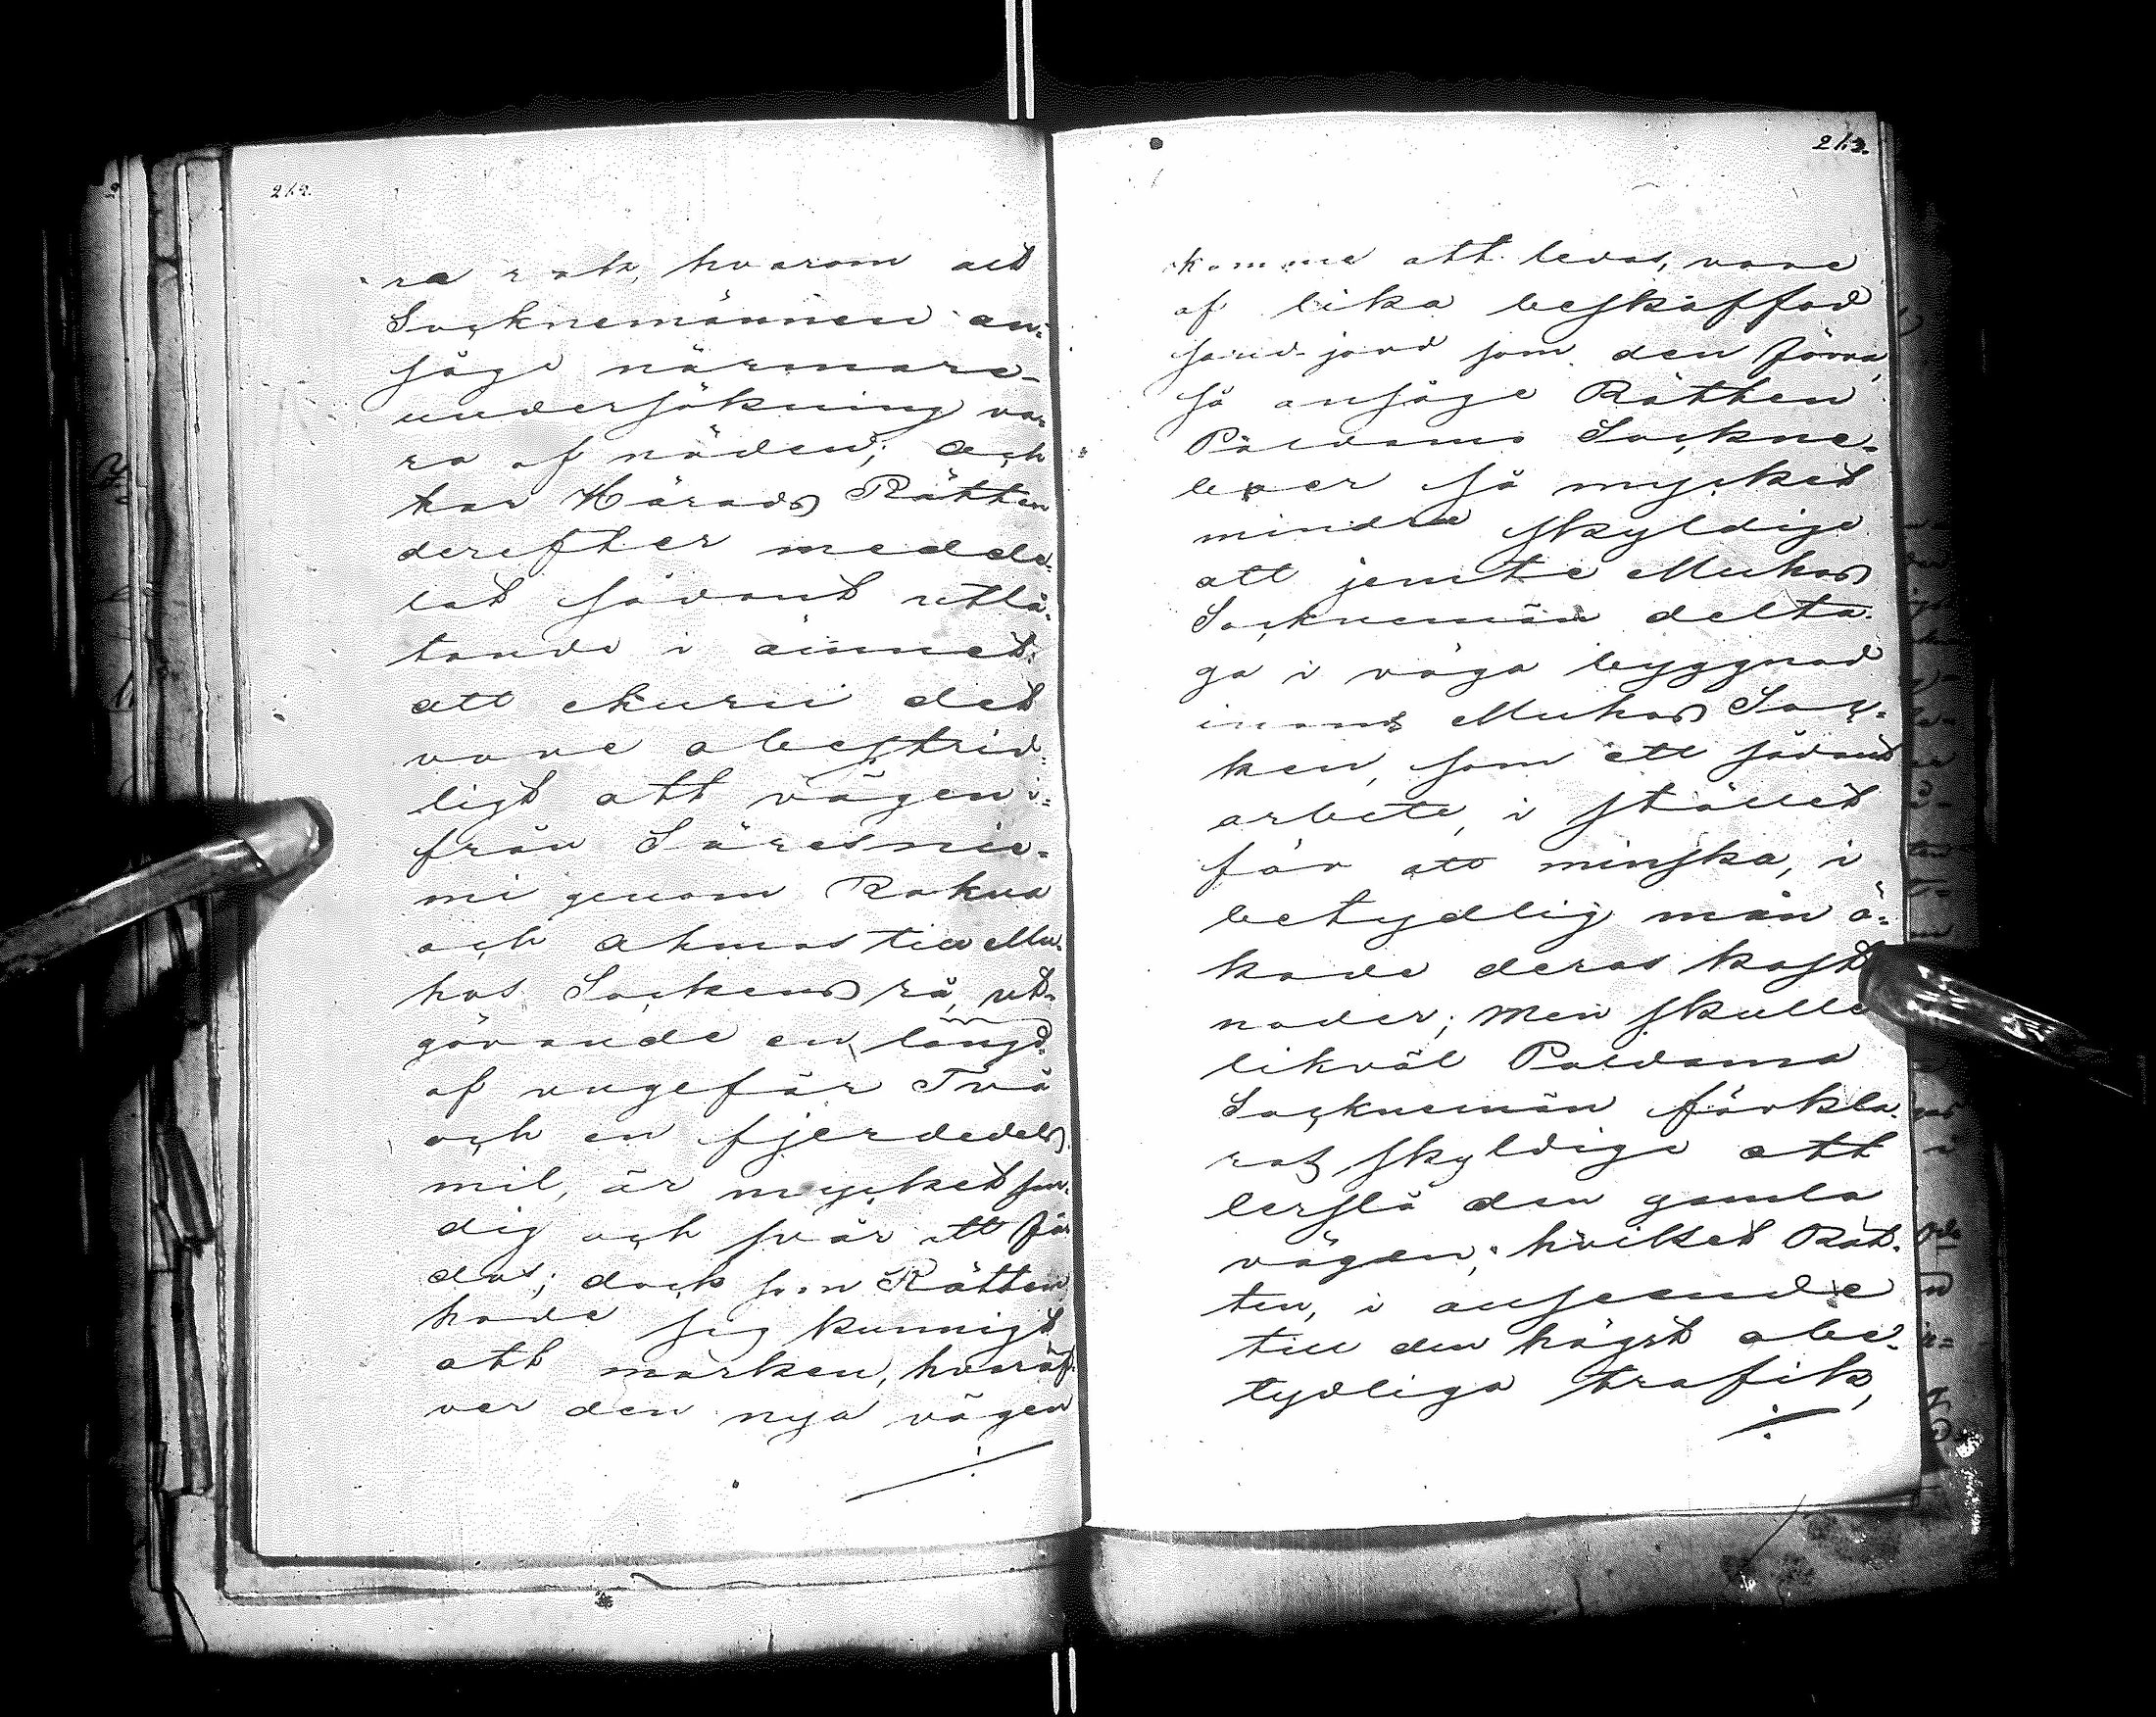 212.
ra rak, hvarom alt
Socknemännen an-
såge närmare
undersökning va-
ra af nöden; Och
har Härads Rätten
derefter medde-
lat sådant utlå-
tande i ämnet:
att ehuru det
vore obestrid-
ligt att vägen i-
från Säresnie-
mi genom Rokua
och Ahmas till Mu-
hos Sockens rå, ut-
görande en längd
af ungefär Två
och en fjerdedels
mil, är mycket san-
dig och svår att fär-
das; dock som Rätten
hade sig kunnigt
att marken, hvaröf-
ver den nya vägen
213.
komme att ledas, vore
af lika beskaffad
sand-jord som den förra,
så ansåge Rätten
Paldamo Sockne-
boer så mycket
mindre skyldige
att jemte Muhos
Socknemän delta-
ga i väga byggnad
inom Muhos Soc-
ken, som ett sådant
arbete, i stället
för att minska, i
betydlig mån ö-
kade deras kost-
nader; men skulle
likväl Paldamo
Socknemän förkla-
ras skyldige att
lerslå den gamla
vägen; hvilket Rät-
ten, i anseende
till den högst obe-
tydliga trafik,